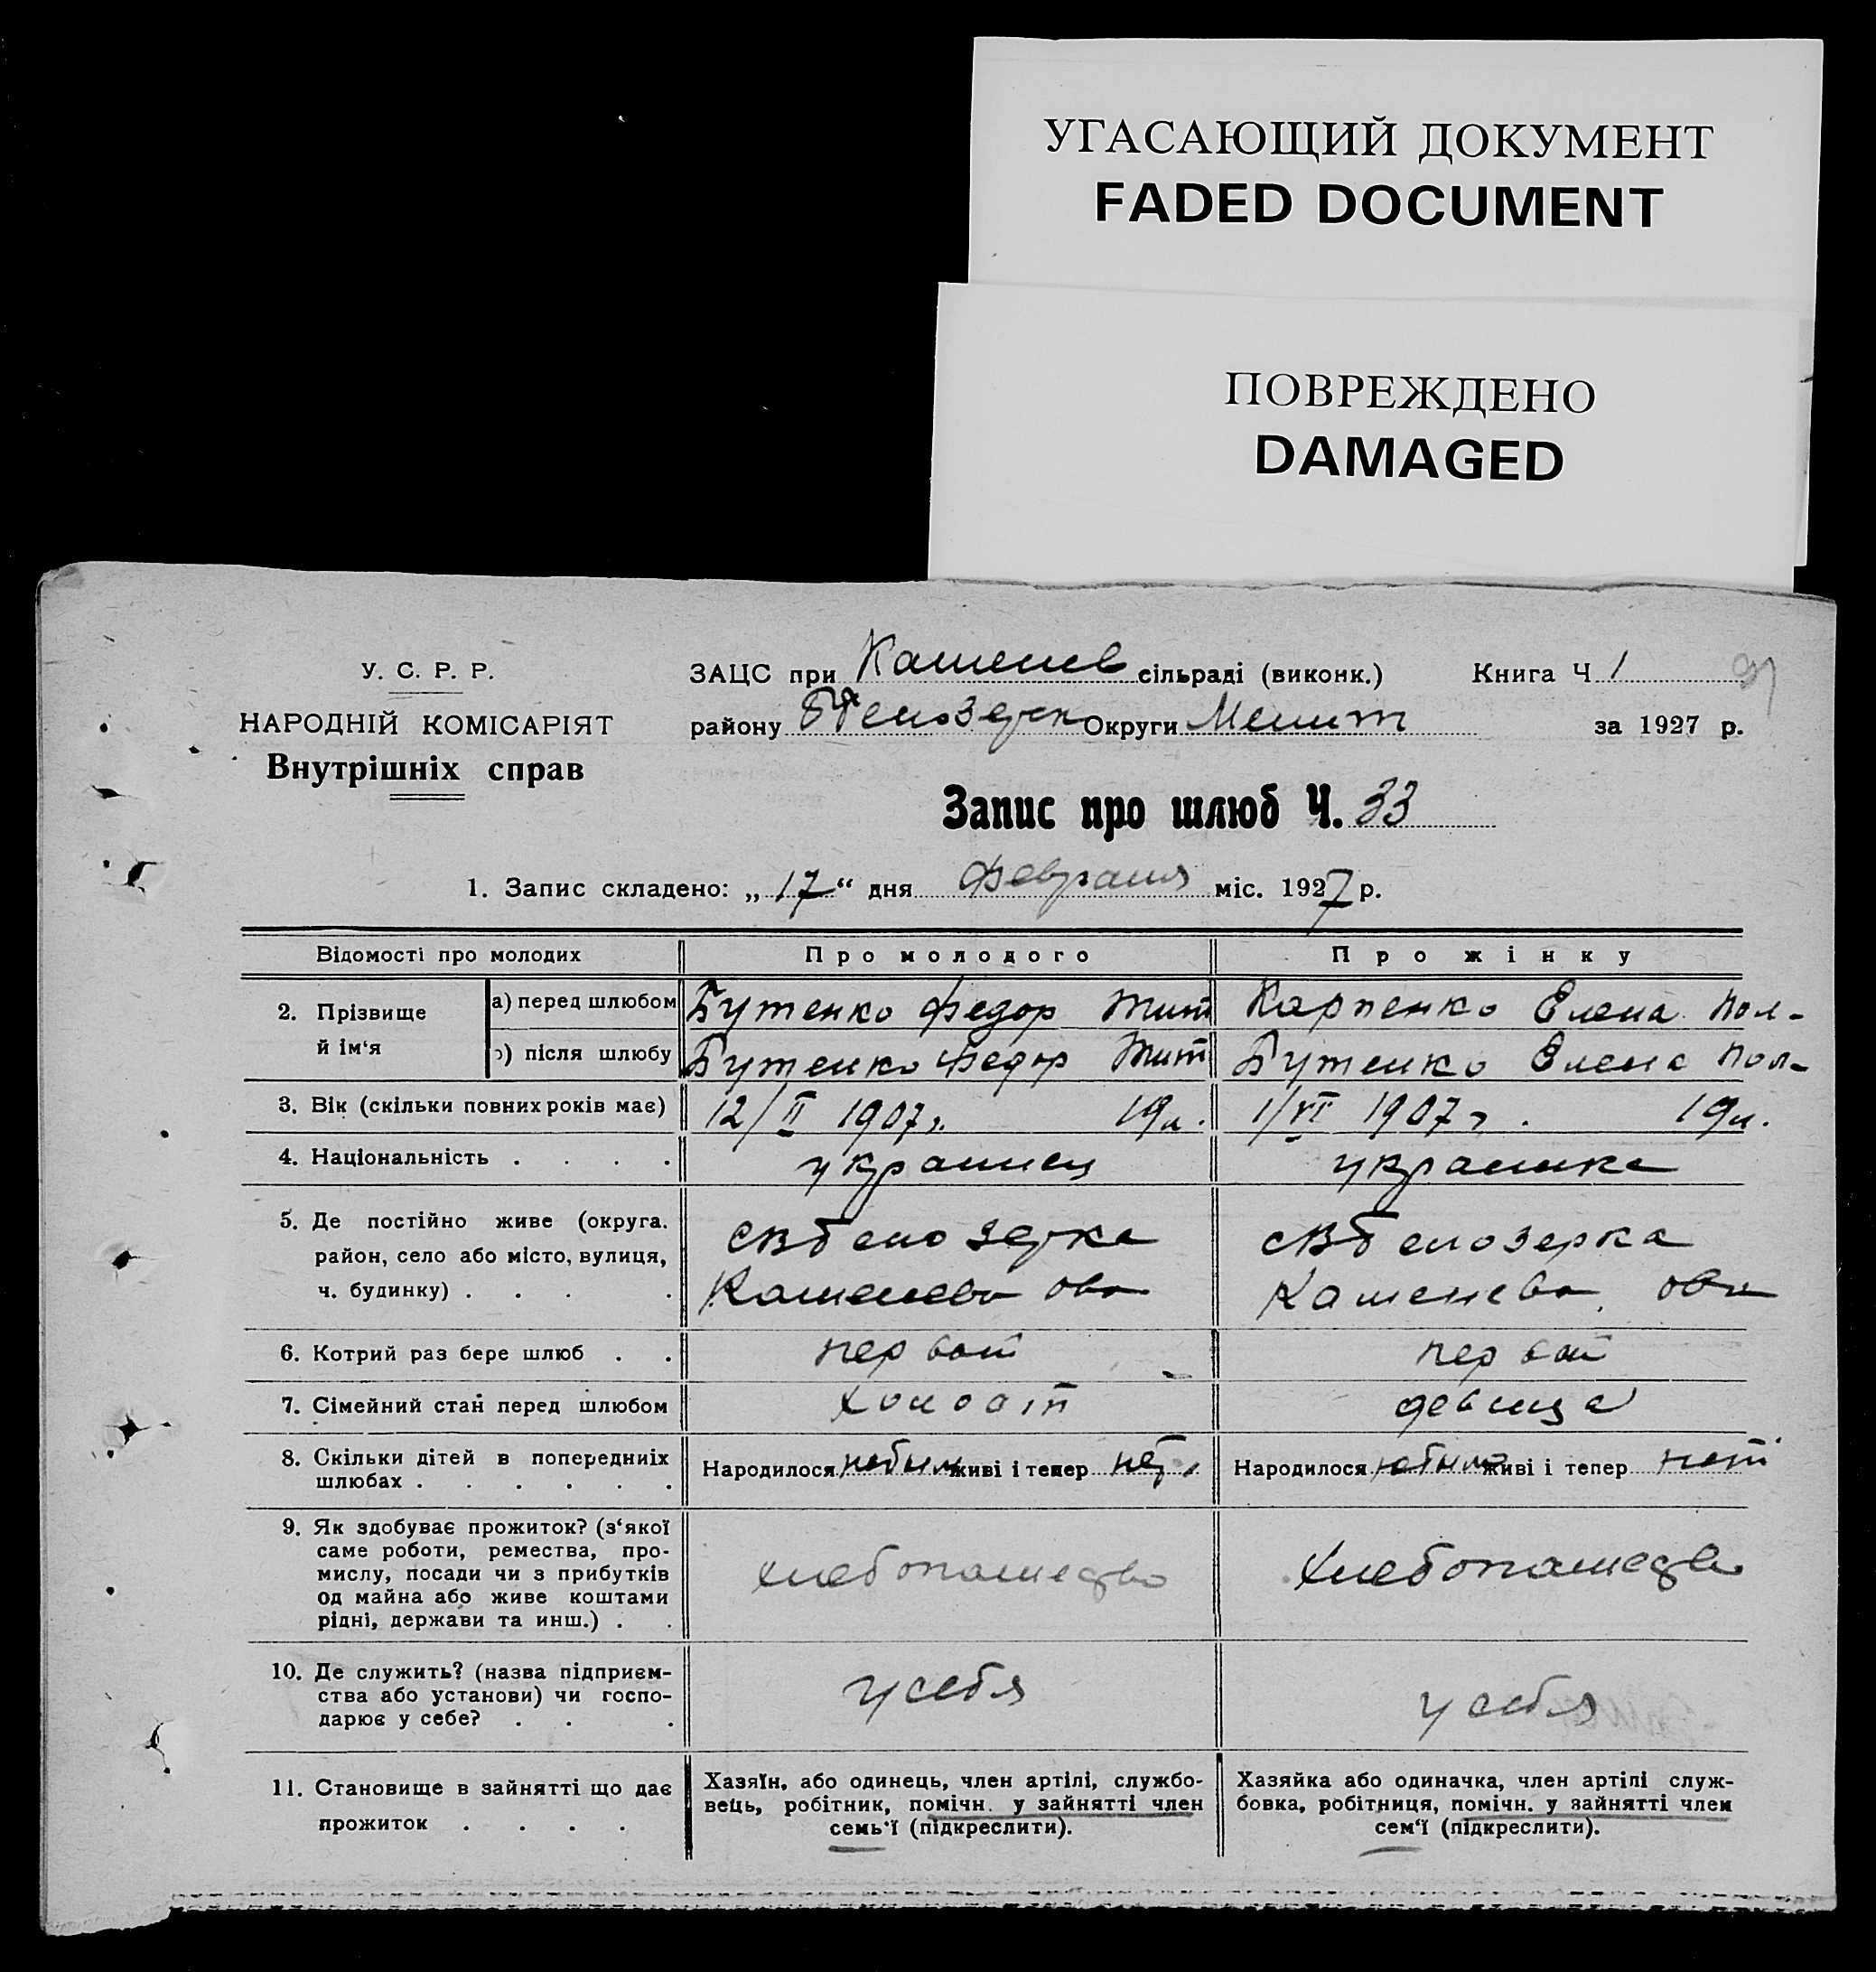 УГАСАЮЩИЙ ДОКУМЕНТ
FADED DOCUMENT
ПОВРЕЖДЕНО
DAMAGED
У. С. Р. Р.
НАРОДНІЙ КОМІСАРІЯТ
Внутрішніх справ
ЗАЦС при Кашенев сільраді (виконк.) Книга Ч 1 91
району Округи Мелит за 1927 р.
Запис про шлюб Ч. 33
1. Запис складено: „17“ дня февраля міс. 1927 р.
Відомості про молодих Про молодого Про жінку
2. Прізвище й ім‘я
а) перед шлюбом Бутенко Федор Тит Карпенко Елена Пол-
) після шлюбу Бутенко Федор Тит Бутенко Елена Пол-
3. Вік (скільки повних років має) 12/II 1907 г. 19 л. 1/VI 1907 г. 19 л.
4. Національність . . . . украинец украинка
5. Де постійно живе (округа. район, село або місто, вулиця, ч. будинку) . . . .
СВбелозерка СВбелозерка
6. Котрий раз бере шлюб . . первый первый
7. Сімейний стан перед шлюбом холост девица
8. Скільки дітей в попередниіх шлюбах . . . . . .
Народилося небыло живі і тепер нет Народилося небыло живі і тепер нет
9. Як здобуває прожиток? (з‘якої
саме роботи, ремества, про-
мислу, посади чи з прибутків
од майна або живе коштами
рідні, держави та инш.) . .
хлебопашедво хлебопашедво
10. Де служить? (назва підприєм-
ства або установи) чи госпо-
дарює у себе? . . .
у себя у себя
11. Становище в зайнятті що дає
прожиток . . . .
Хазяїн, або одинець, член артілі, службо-
вець, робітник, помічн. у зайнятті член
семь‘ї (підкреслити).
Хазяйка або одиначка, член артілі служ-
бовка, робітниця, помічн. у зайнятті член
сем‘ї (підкреслити).